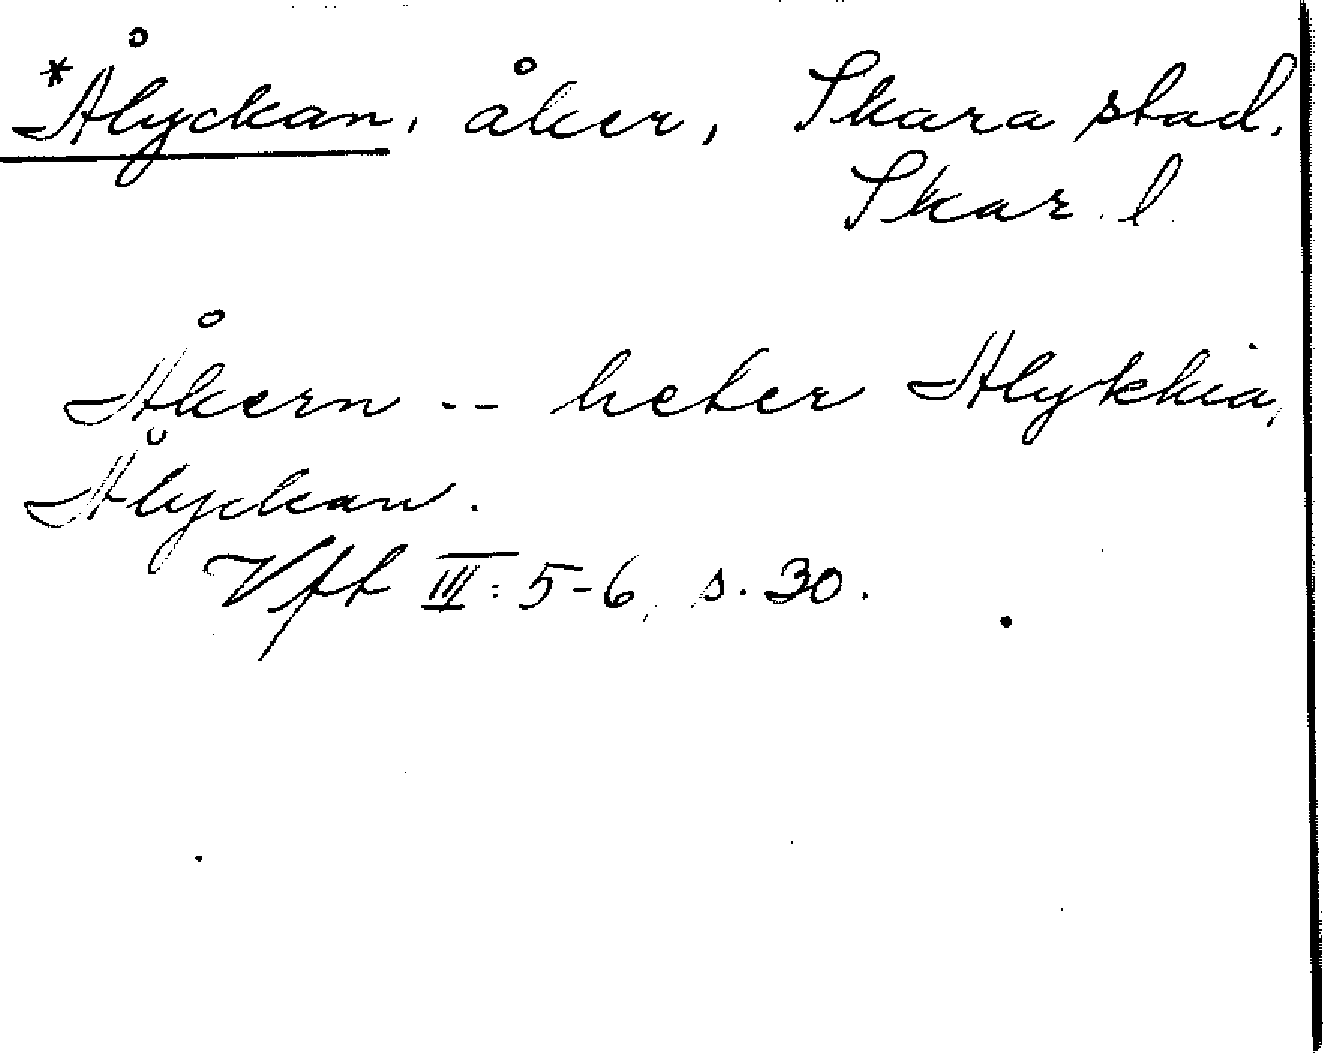 *Ålyckan, åker, Skara stad.
Skar. l.
Åkern -- heter Alykkia,
Ålyckan.
Vft III: 5-6, s. 30.